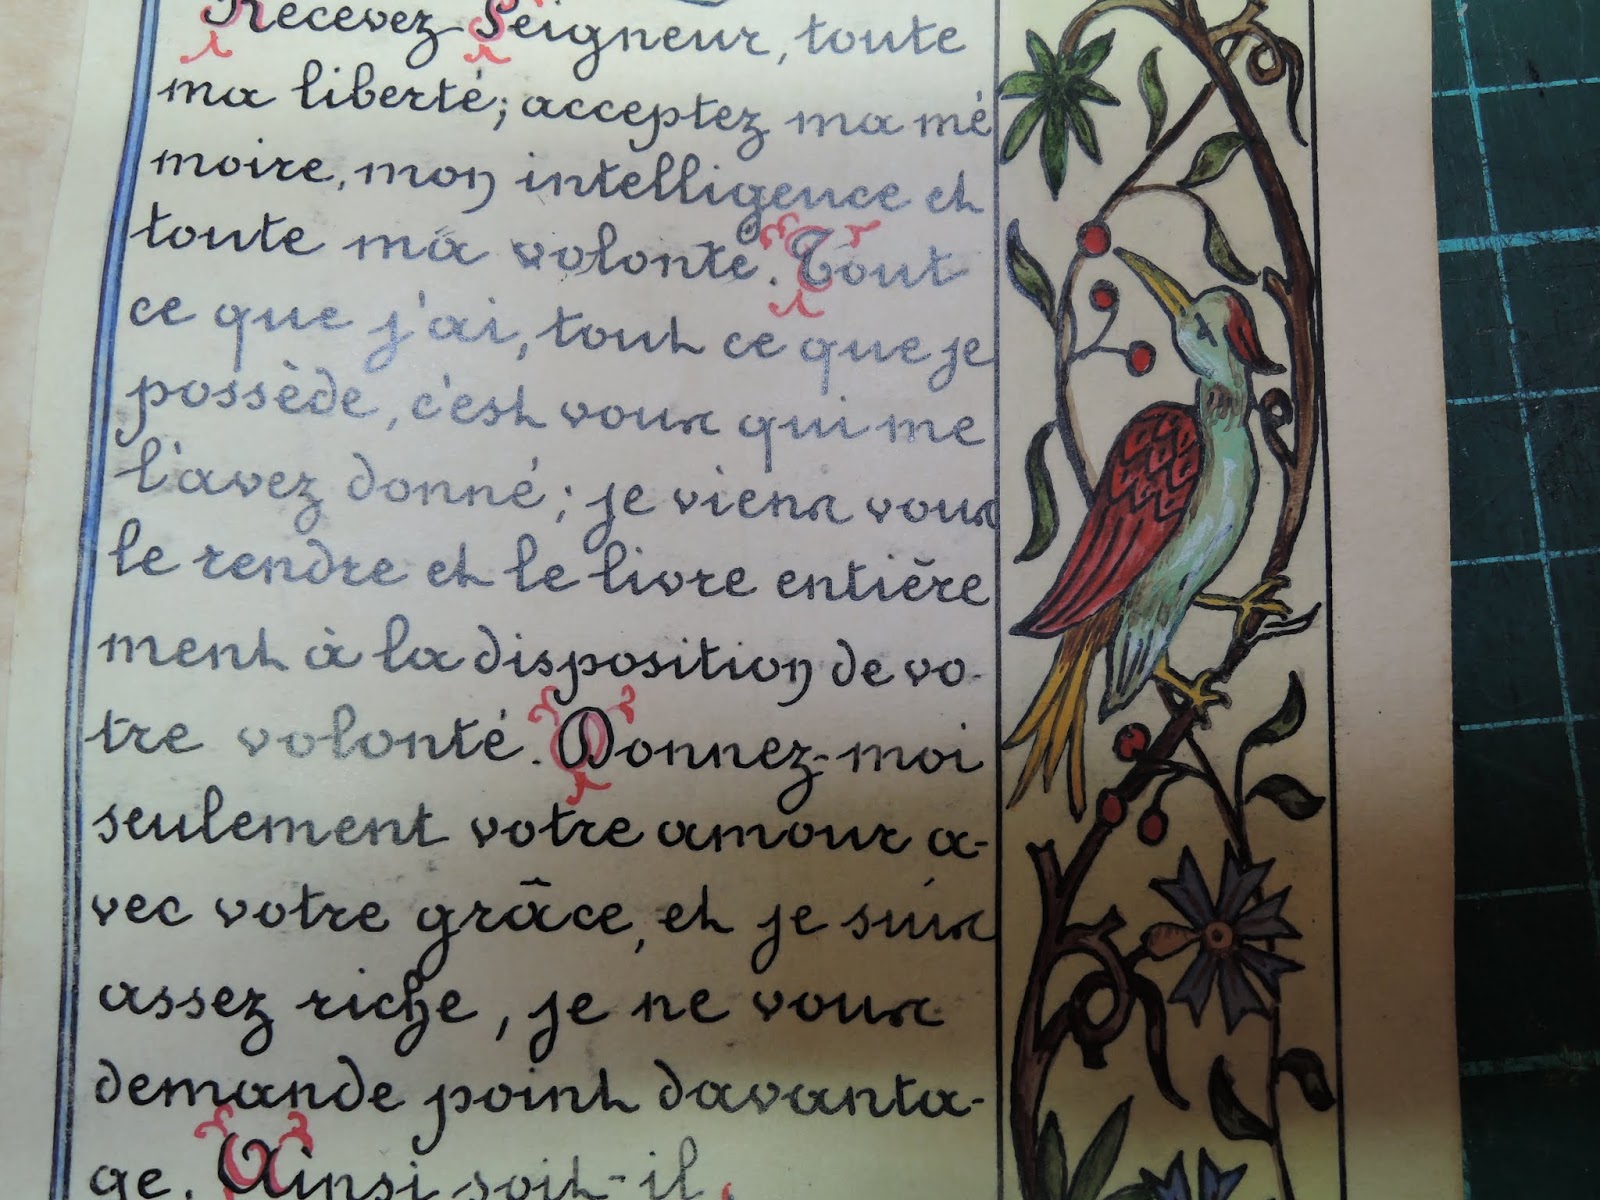 Recevez Seigneur, toute
ma liberté; acceptez ma mé
moire, mon intelligence et
toute ma volonté. Tout
ce que j'ai, tout ce que je
possède, c'est vous qui me
l'avez donné; je viens vous
le rendre et le livre entière
ment à la disposition de vo-
tre volonté. Donnez-moi
seulement votre amour a-
vec votre grâce, et je suis
assez riche, je ne vous
demande point davanta-
ge. Ainsi soit-il.